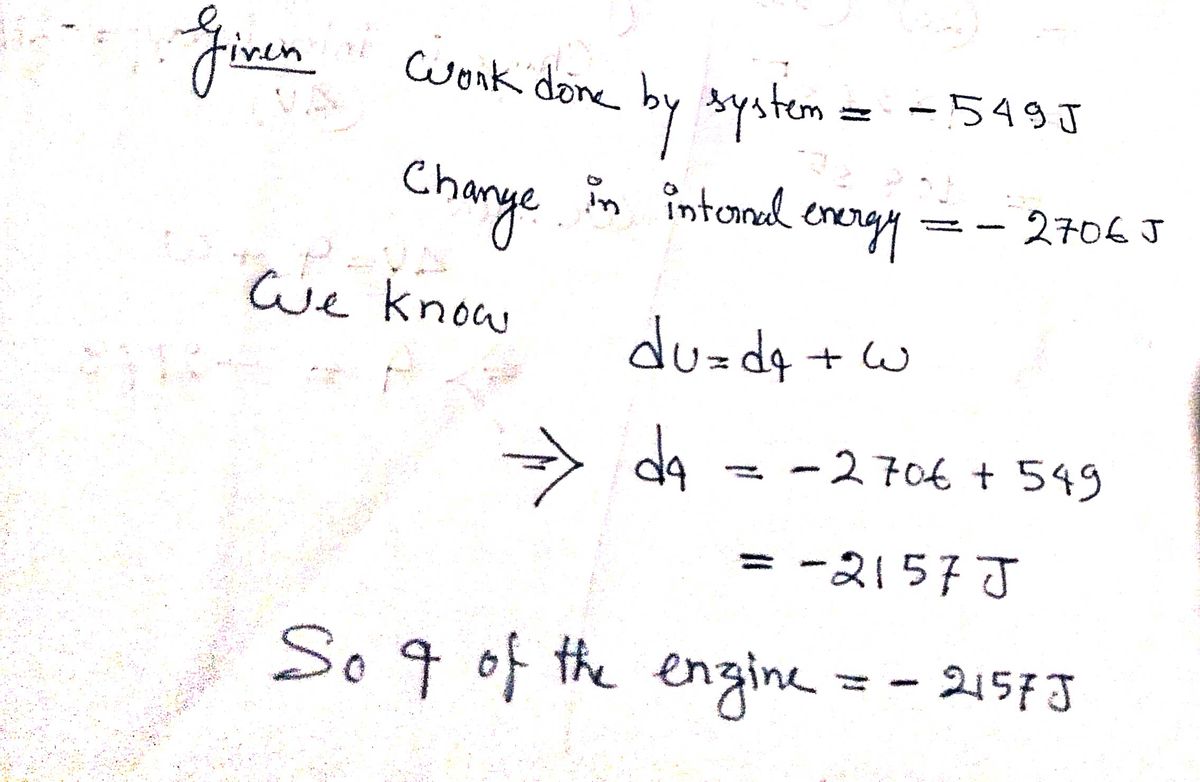 Given Work done by system = - 549 J
Change in internal energy = - 2706 J
We know
du = dq + w
⇒ dq = - 2706 + 549
= - 2157 J
So q of the engine = - 2157 J